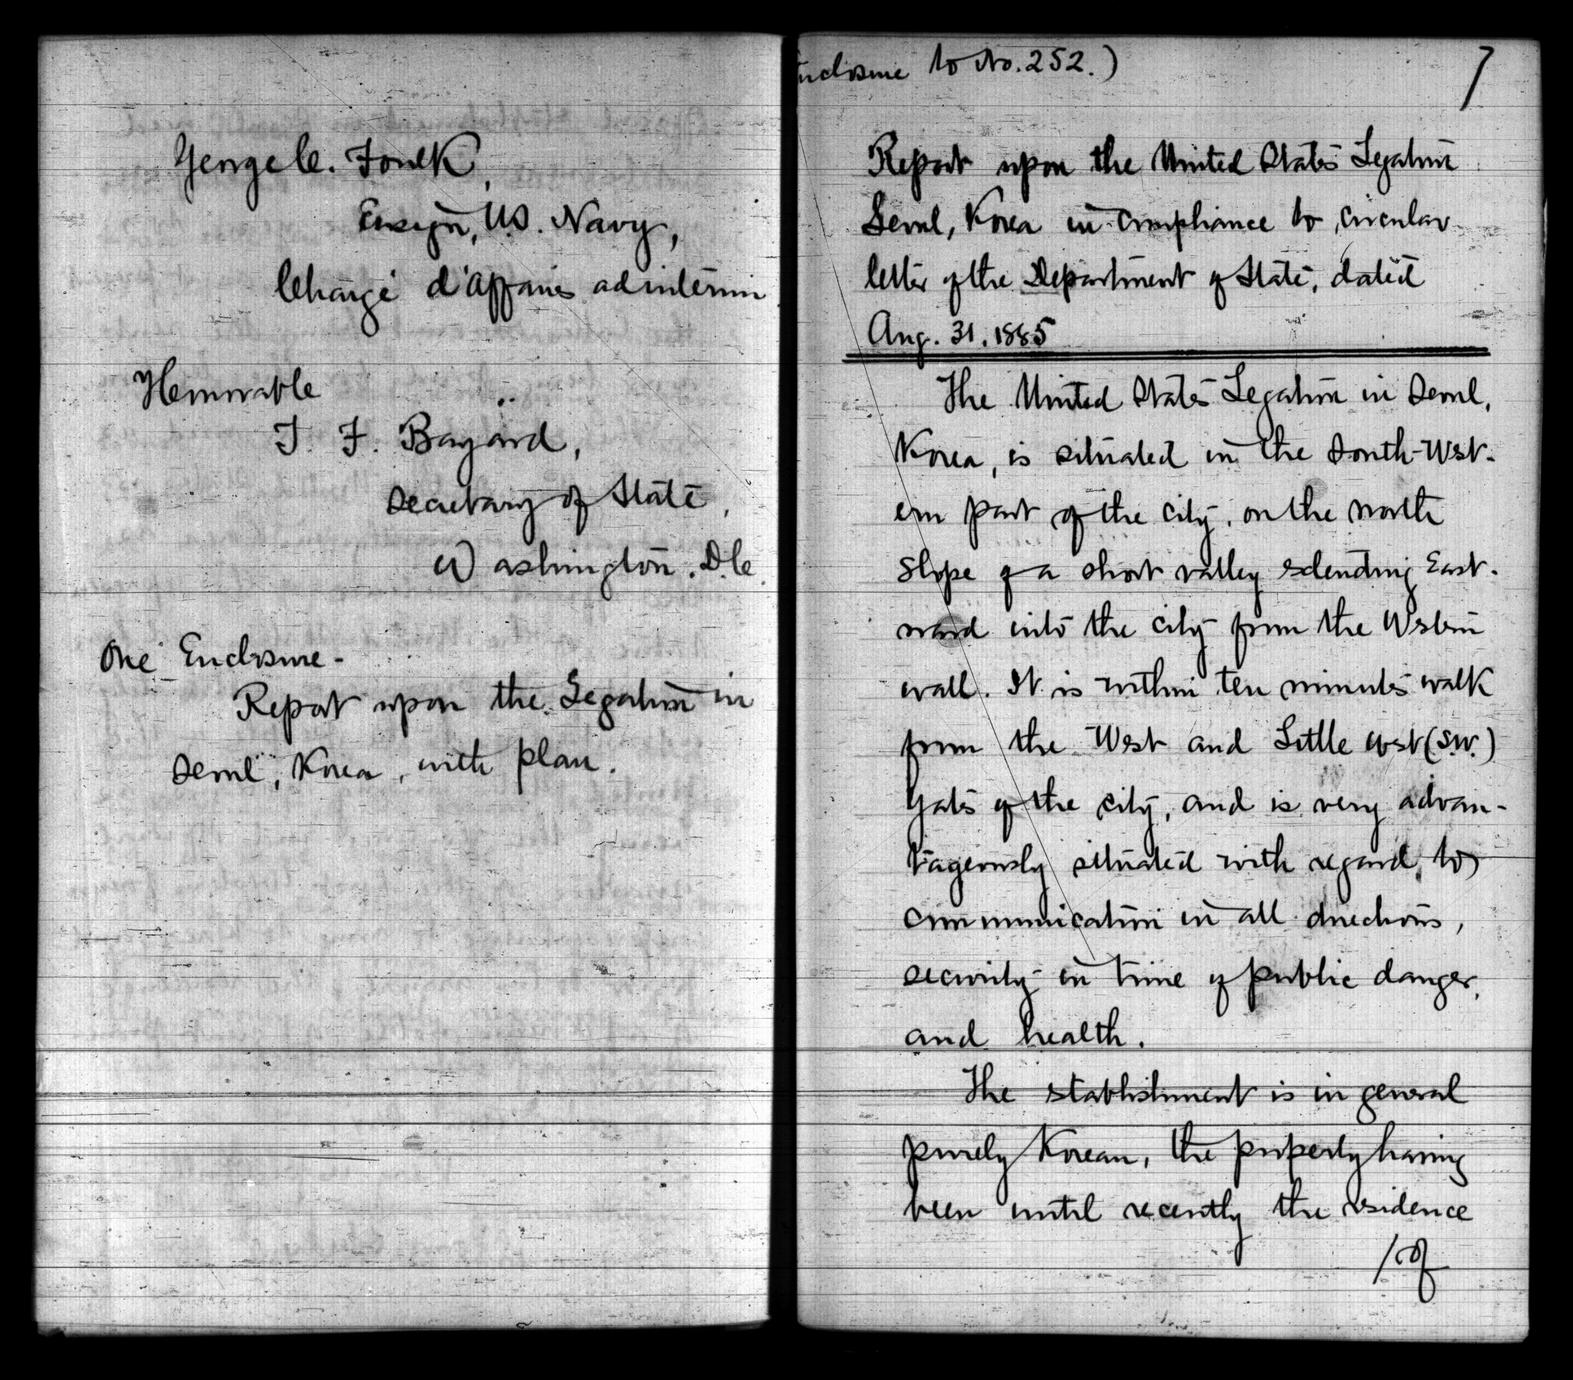 George C. Foulk,
Ensign, U.S. Navy,
Chargé d'Affaires ad interim
Honorable
T. F. Bayard,
Secretary of State,
Washington. D.C.
One Enclosure-
Report upon the Legation in
Seoul, Korea, with plan.
Enclosure to No. 252.)
7
Report upon the United States Legation
Seoul, Korea in compliance to circular
letter of the Department of State, dated
Aug. 31. 1885
The United States Legation in Seoul,
Korea, is situated in the South-West-
ern part of the city, on the north
slope of a short valley extending East-
ward into the city from the Western
wall. It is within ten minutes walk
from the West and Little West (S.W.)
Gates of the city, and is very advan-
tageously situated with regard to
communication in all directions,
security in time of public danger,
and health.
The establishment is in general
purely Korean, the property having
been until recently the residence
/of